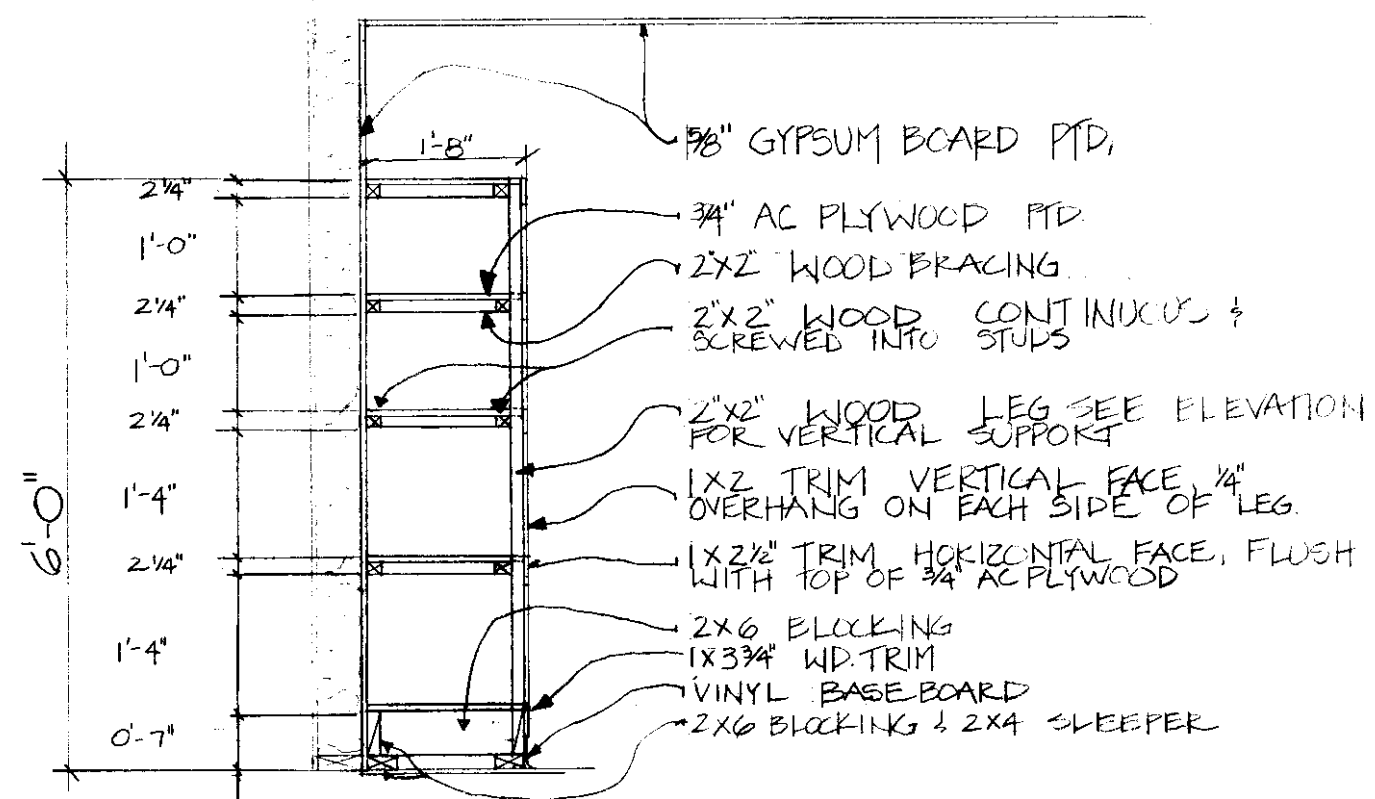 5/8" GYPSUM BOARD PTD.
1'-8"
2 1/4"
3/4" AC PLYWOOD PTD.
1'-0"
2"X2" WOOD BRACING
2 1/4"
2"X2" WOOD CONTINUOUS &
SCREWED INTO STUDS
1'-0"
2 1/4"
2"X2" WOOD LEG SEE ELEVATION
FOR VERTICAL SUPPORT
6'-0"
1'-4"
1X2 TRIM VERTICAL FACE, 1/4"
OVERHANG ON EACH SIDE OF LEG.
2 1/4"
1X2 1/2" TRIM HORIZONTAL FACE, FLUSH
WITH TOP OF 3/4" AC PLYWOOD
1'-4"
2X6 BLOCKING
1X3 3/4" WD. TRIM
VINYL BASEBOARD
0'-7"
2X6 BLOCKING & 2X4 SLEEPER